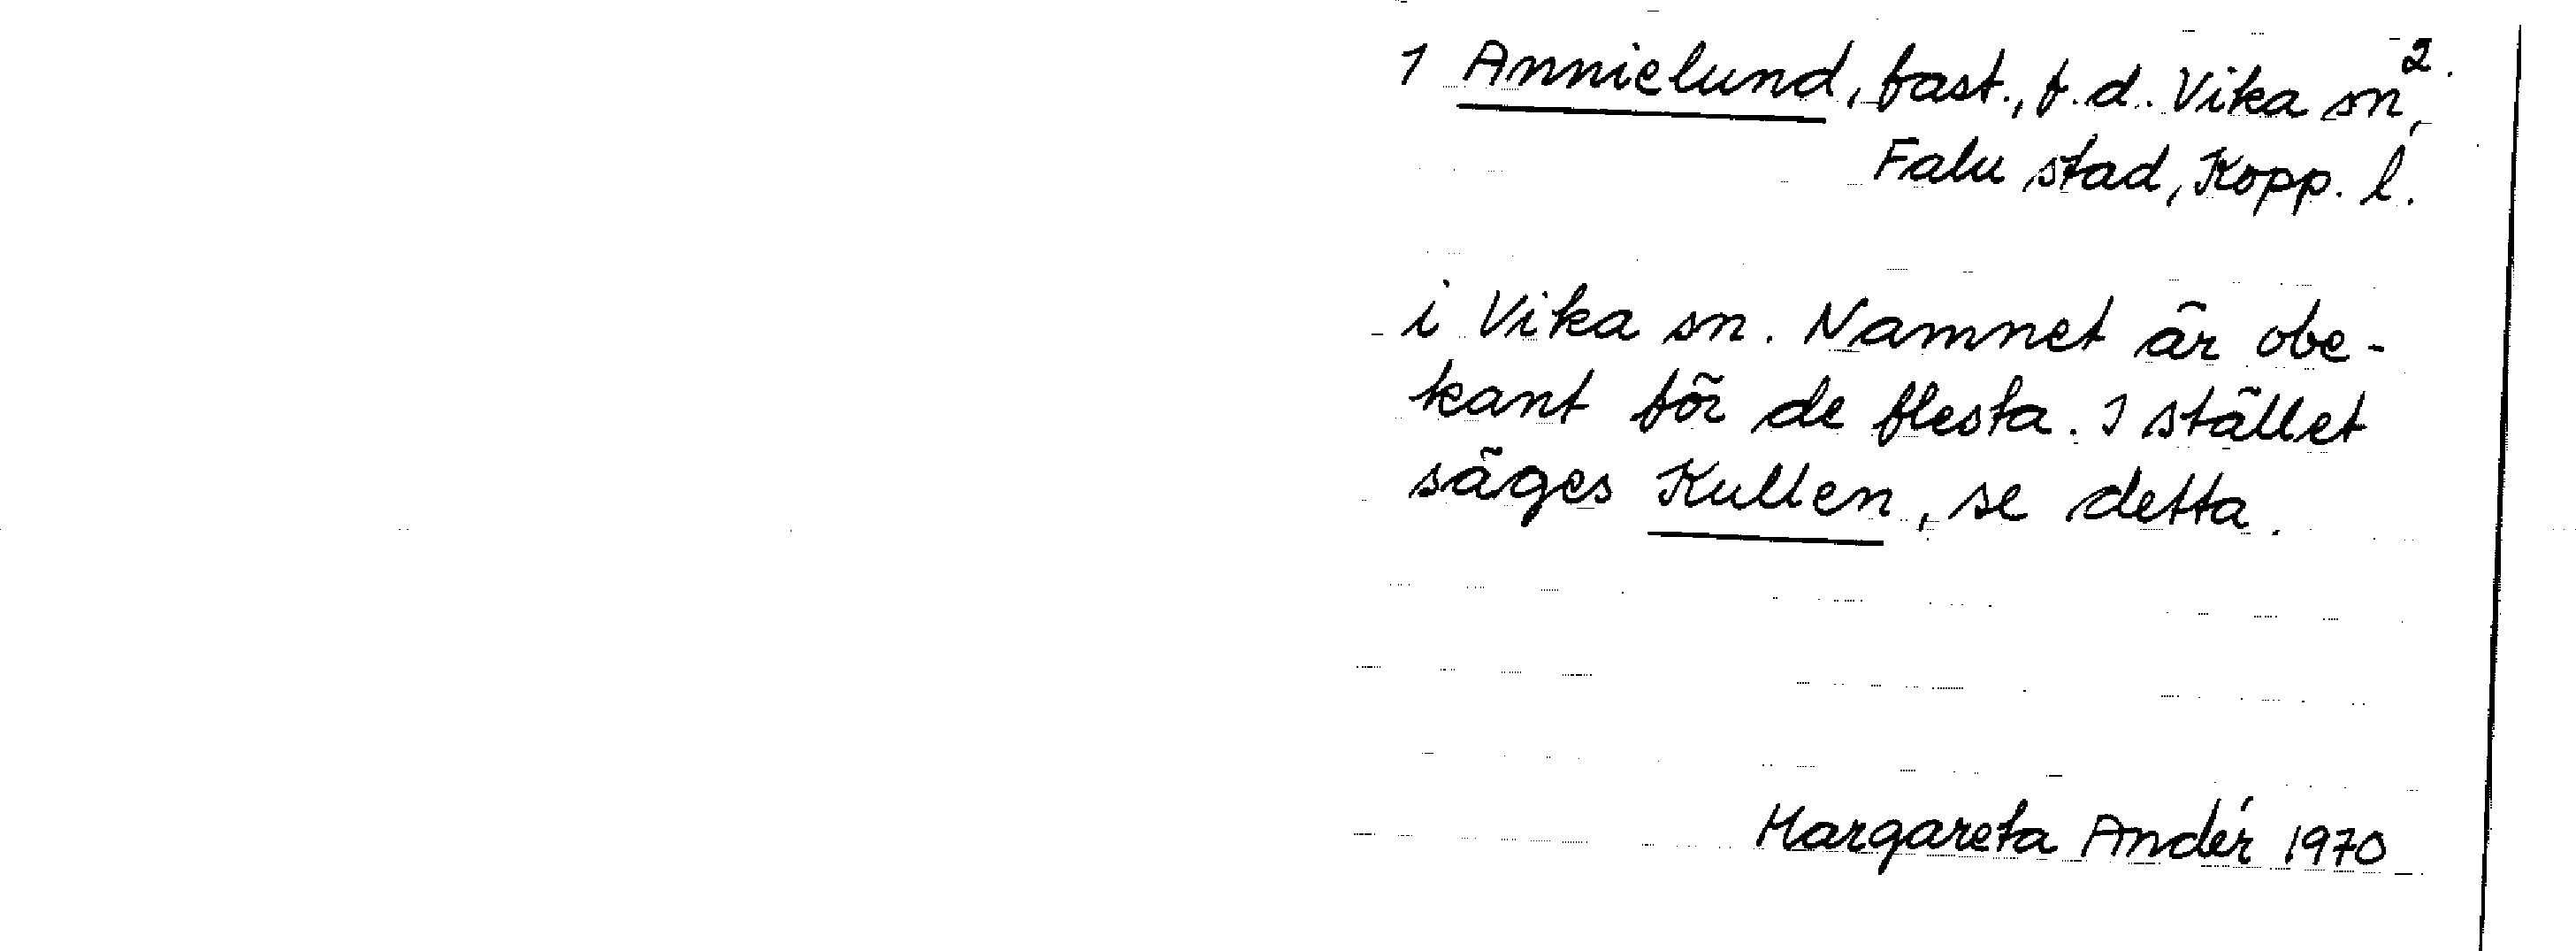 2.
1 Annielund, fast., f.d. Vika sn,
Falu stad, Kopp. l.
i Vika sn. Namnet är obe-
kant för de flesta. I stället
säges Kullen, se detta.
Margareta Andér 1970